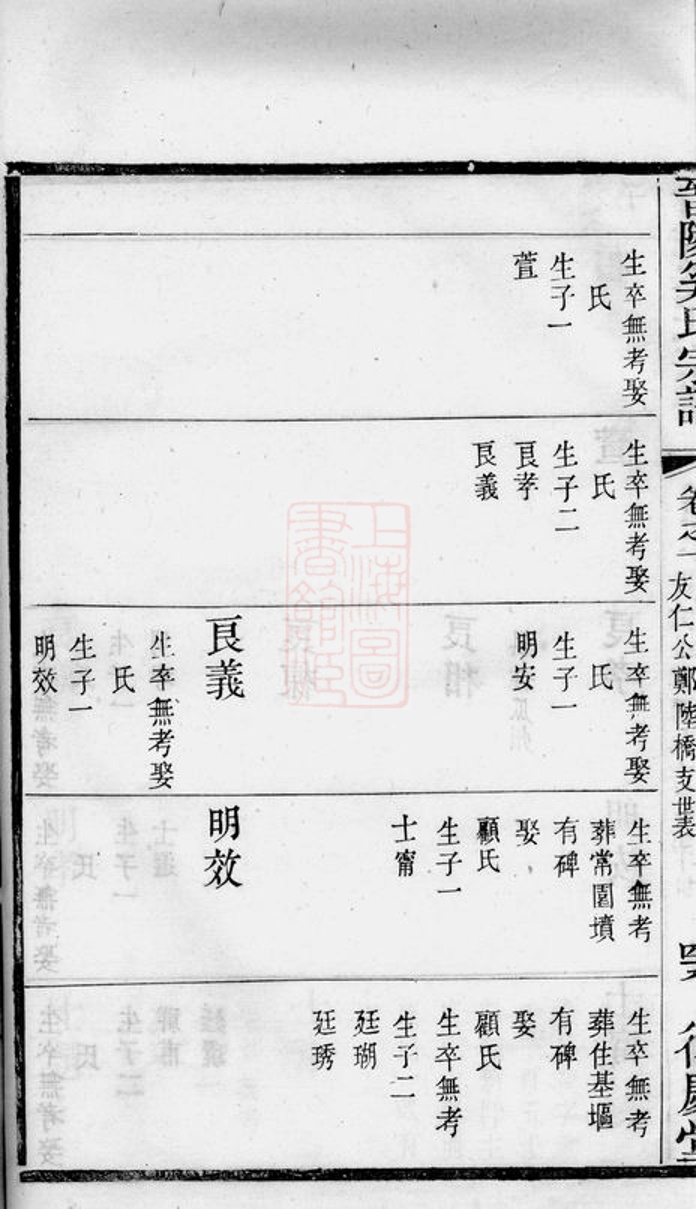 晉陵
氏宗譜
卷之一 友仁公鄭陸橋支世表
生卒無考娶
氏
生子一
萓
生卒無考娶
氏
生子二
艮孝
艮義
生卒無考娶
氏
生子一
明安
艮義
生卒無考娶
氏
生子一
明效
生卒無考
葬常園墳
有碑
娶
顧氏
生子一
士甯
明效
生卒無考
葬住基堰
有碑
娶
顧氏
生卒無考
生子二
廷瑚
廷琇
上海圖書館藏